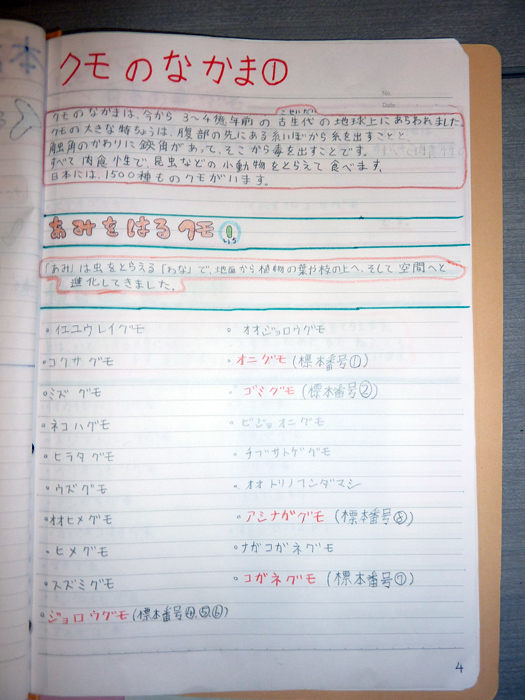 クモのなかま①
No.
Date
クモのなかまは、今から3〜4億年前の古生代の地球上にあらわれました
こせいだい
クモの大きな特ちょうは、腹部の先にある糸いぼから糸を出すことと、
触角のかわりに鋏角があって、そこから毒を出すことです。
すべて肉食性で、昆虫などの小動物をとらえて食べます。
日本には、1500種ものクモがいます。
あみをはるクモ①
「あみ」は虫をとらえる「わな」で、地面から植物の葉や枝の上へ、そして空間へと
進化してきました。
・イエユウレイグモ
・オオジョロウグモ
・コクサグモ
・オニグモ(標本番号①)
・ミズグモ
・ゴミグモ(標本番号②)
・ネコハグモ
・ビジョオニグモ
・ヒラタグモ
・チブサトゲグモ
・ウズグモ
・オオトリノフンダマシ
・オオヒメグモ
・アシナガグモ(標本番号③)
・ヒメグモ
・ナガコガネグモ
・スズミグモ
・コガネグモ(標本番号⑦)
・ジョロウグモ(標本番号④,⑤,⑥)
4